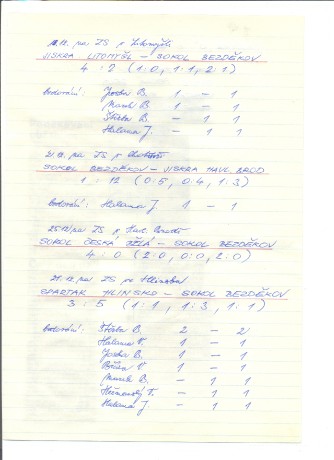 18.12. na ZS v Litomyšli
JISKRA LITOMYŠL – SOKOL BEZDĚKOV
4 : 2 (1:0, 1:1, 2:1)
bodování: B. 1 – 1
Marek B. 1 – 1
Štěrba B. – 1 1
Halama J. – 1 1
21.12. na ZS v
SOKOL BEZDĚKOV – JISKRA HAVL. BROD
1 : 12 (0:5, 0:4, 1:3)
bodování: Halama J 1 – 1
25.12. na ZS v Havl. Brodě
SOKOL ČESKÁ BĚLÁ – SOKOL BEZDĚKOV
4 : 0 (2:0, 0:0, 2:0)
27.12. na ZS v Hlinsku
SPARTAK HLINSKO – SOKOL BEZDĚKOV
3 : 5 (1:1, 1:3, 1:1)
bodování: Štěrba B. 2 – 2
Halama V. 1 – 1
B. 1 – 1
V. 1 – 1
Marek B. – 1 1
T. – 1 1
Halama J – 1 1